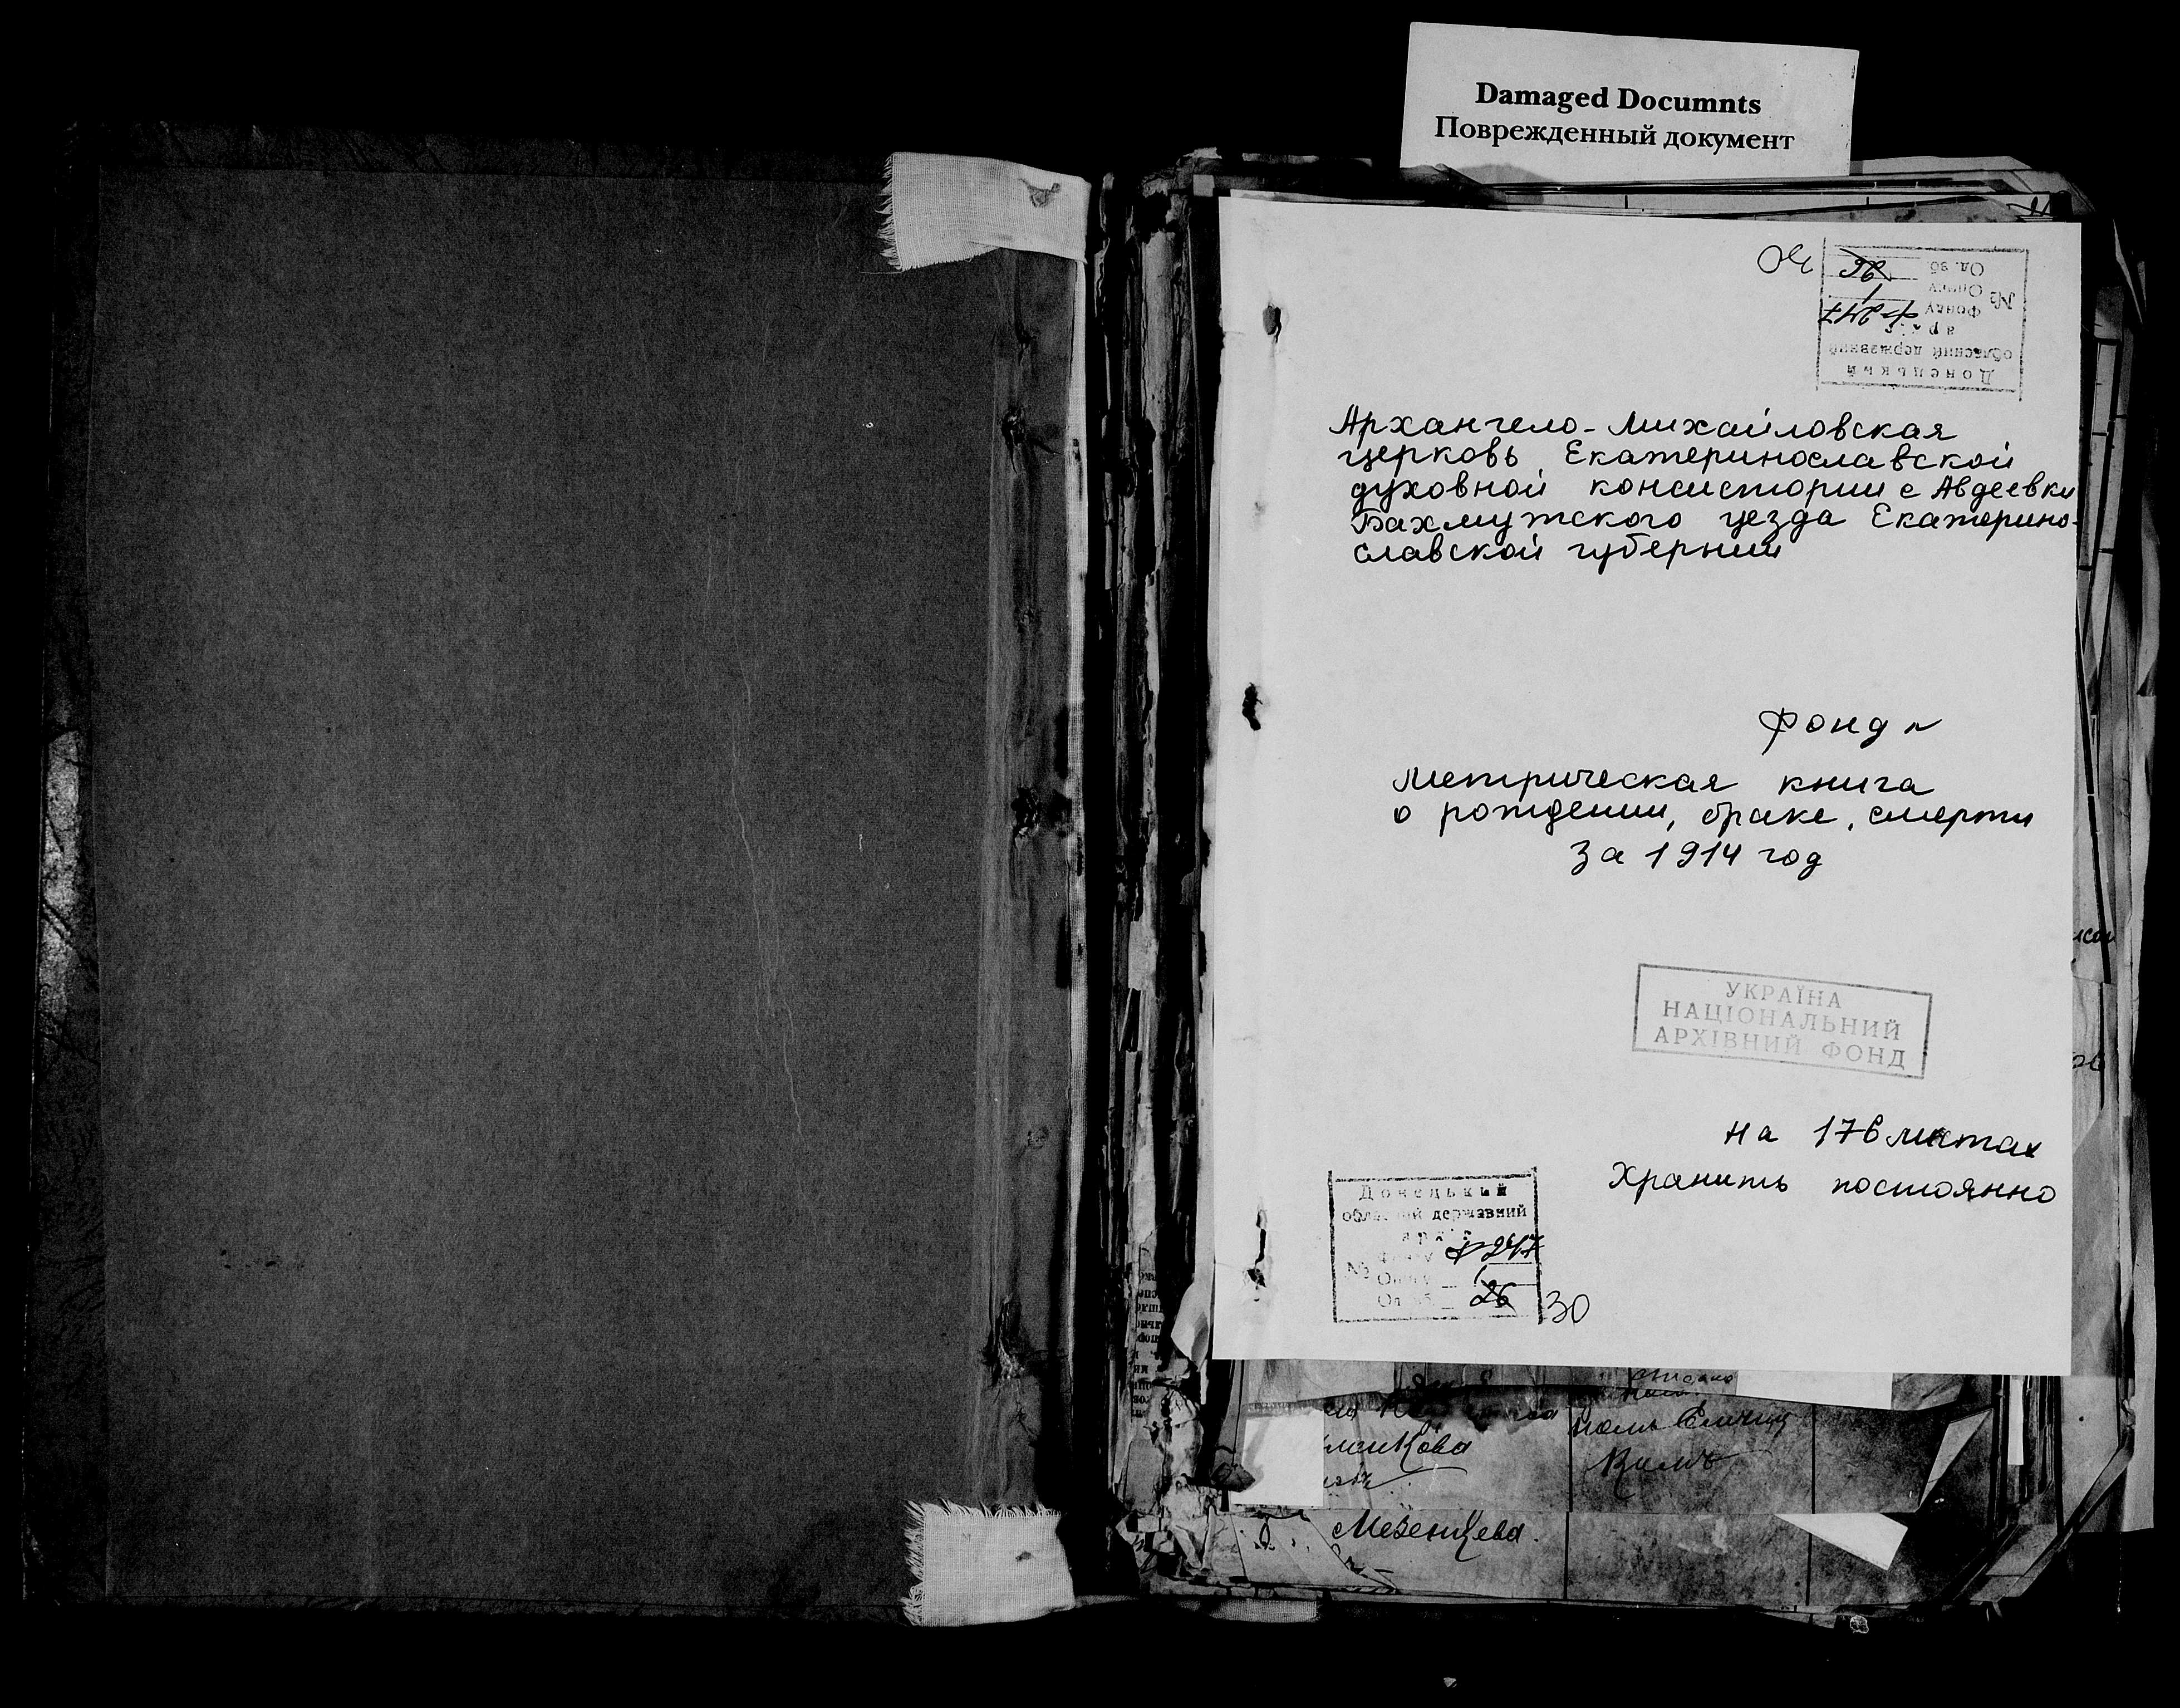 Damaged Documnts
Поврежденный документ
30
Донецький
обласний державний
архів
№ Фонду Ф-247
Опису 1
Од. зб. 26
Архангело-Михайловская
церковь Екатеринославской
духовной консистории с Авдеевки
Бахмутского уезда Екатерино-
славской губернии
Фонд №
Метрическая книга
о рождении, браке, смерти
за 1914 год
УКРАЇНА
НАЦІОНАЛЬНИЙ
АРХІВНИЙ ФОНД
на 176 листах
Хранить постоянно
Донецький
обласний державний
архів
№ Фонду Ф-247
Опису 1
Од. зб. 26
30
Мезенцева.